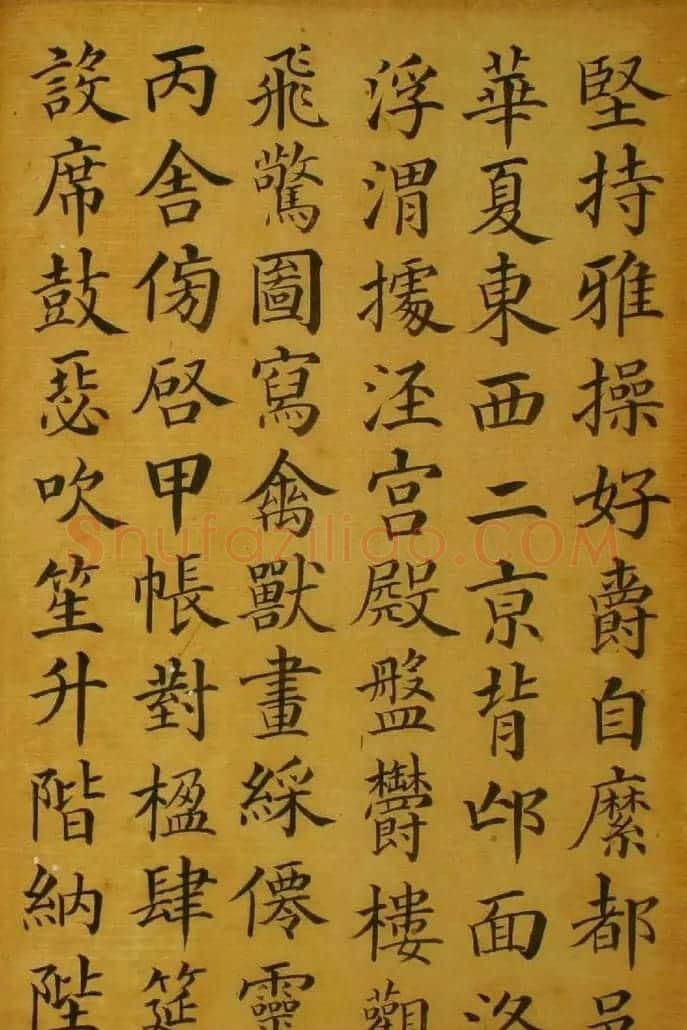 堅持雅操好爵自縻都邑
華夏東西二京背邙面洛
浮渭據涇宮殿盤鬱樓觀
飛驚圖寫禽獸畫綵僊靈
丙舍傍啓甲帳對楹肆筵
設席鼓瑟吹笙升階納陛
Shufaziliao.COM